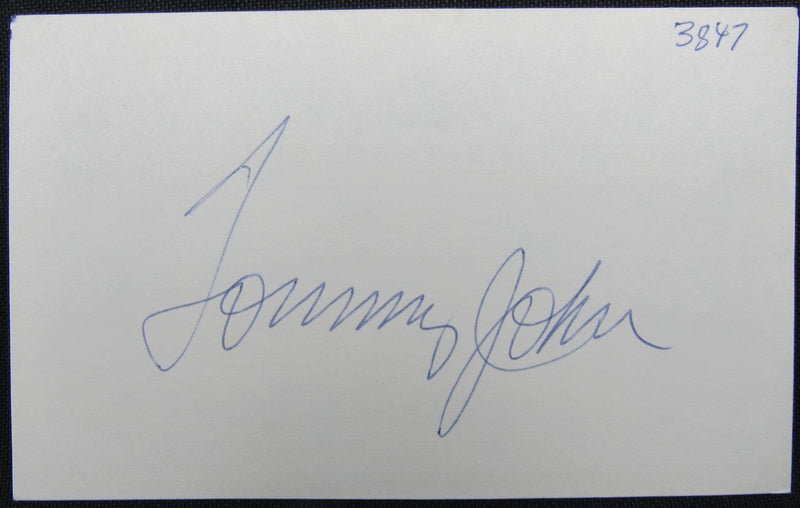 3847
Tommy John